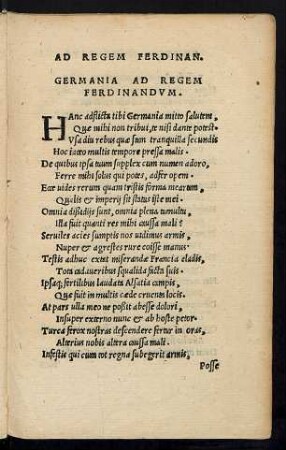 AD REGEM FERDINAN.
GERMANIA AD REGEM
FERDINANDVM.
HAnc adflicta tibi Germania mitto salutem,
Quæ mihi non tribui, te nisi dante potest.
Vsa diu rebus quæ sum tranquilla secundis
Hoc iam multis tempore pressa malis.
De quibus ipsa tuum supplex cum numen adoro,
Ferre mihi solus qui potes, adfer opem.
Eæ uides rerum quam tristis forma mearum,
Qualis & imperij sit status iste mei.
Omnia dissidijs sunt, omnia plena tumultu,
Illa fuit quanti res mihi caussa mali?
Seruiles acies sumptis nos uidimus armis,
Nuper & agrestes rure coisse manus.
Testis adhuc extat miserandæ Francia cladis,
Tot cadaueribus squalida facta suis.
Ipsaq; fertilibus laudata Alsatia campis,
Quæ fuit in multis cæde cruenta locis.
At pars ulla meo ne possit abesse dolori,
Insuper externo nunc & ab hoste petor.
Turca ferox nostras descendere fertur in oras,
Alterius nobis altera caussa mali.
Infestis qui cum tot regna subegerit armis,
Posse